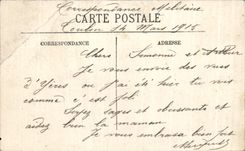 Correspondance Militaire
CARTE POSTALE
Toulon 14 Mars 1915
CORRESPONDANCE ADRESSE
Chers Simonne et
Je vous envoi des vues
d'Yeres ou j'ai été hier tu vois
comme c'est joli
Soyez sages et obeissants et
aidez bien la maman
Je vous embrasse bien fort